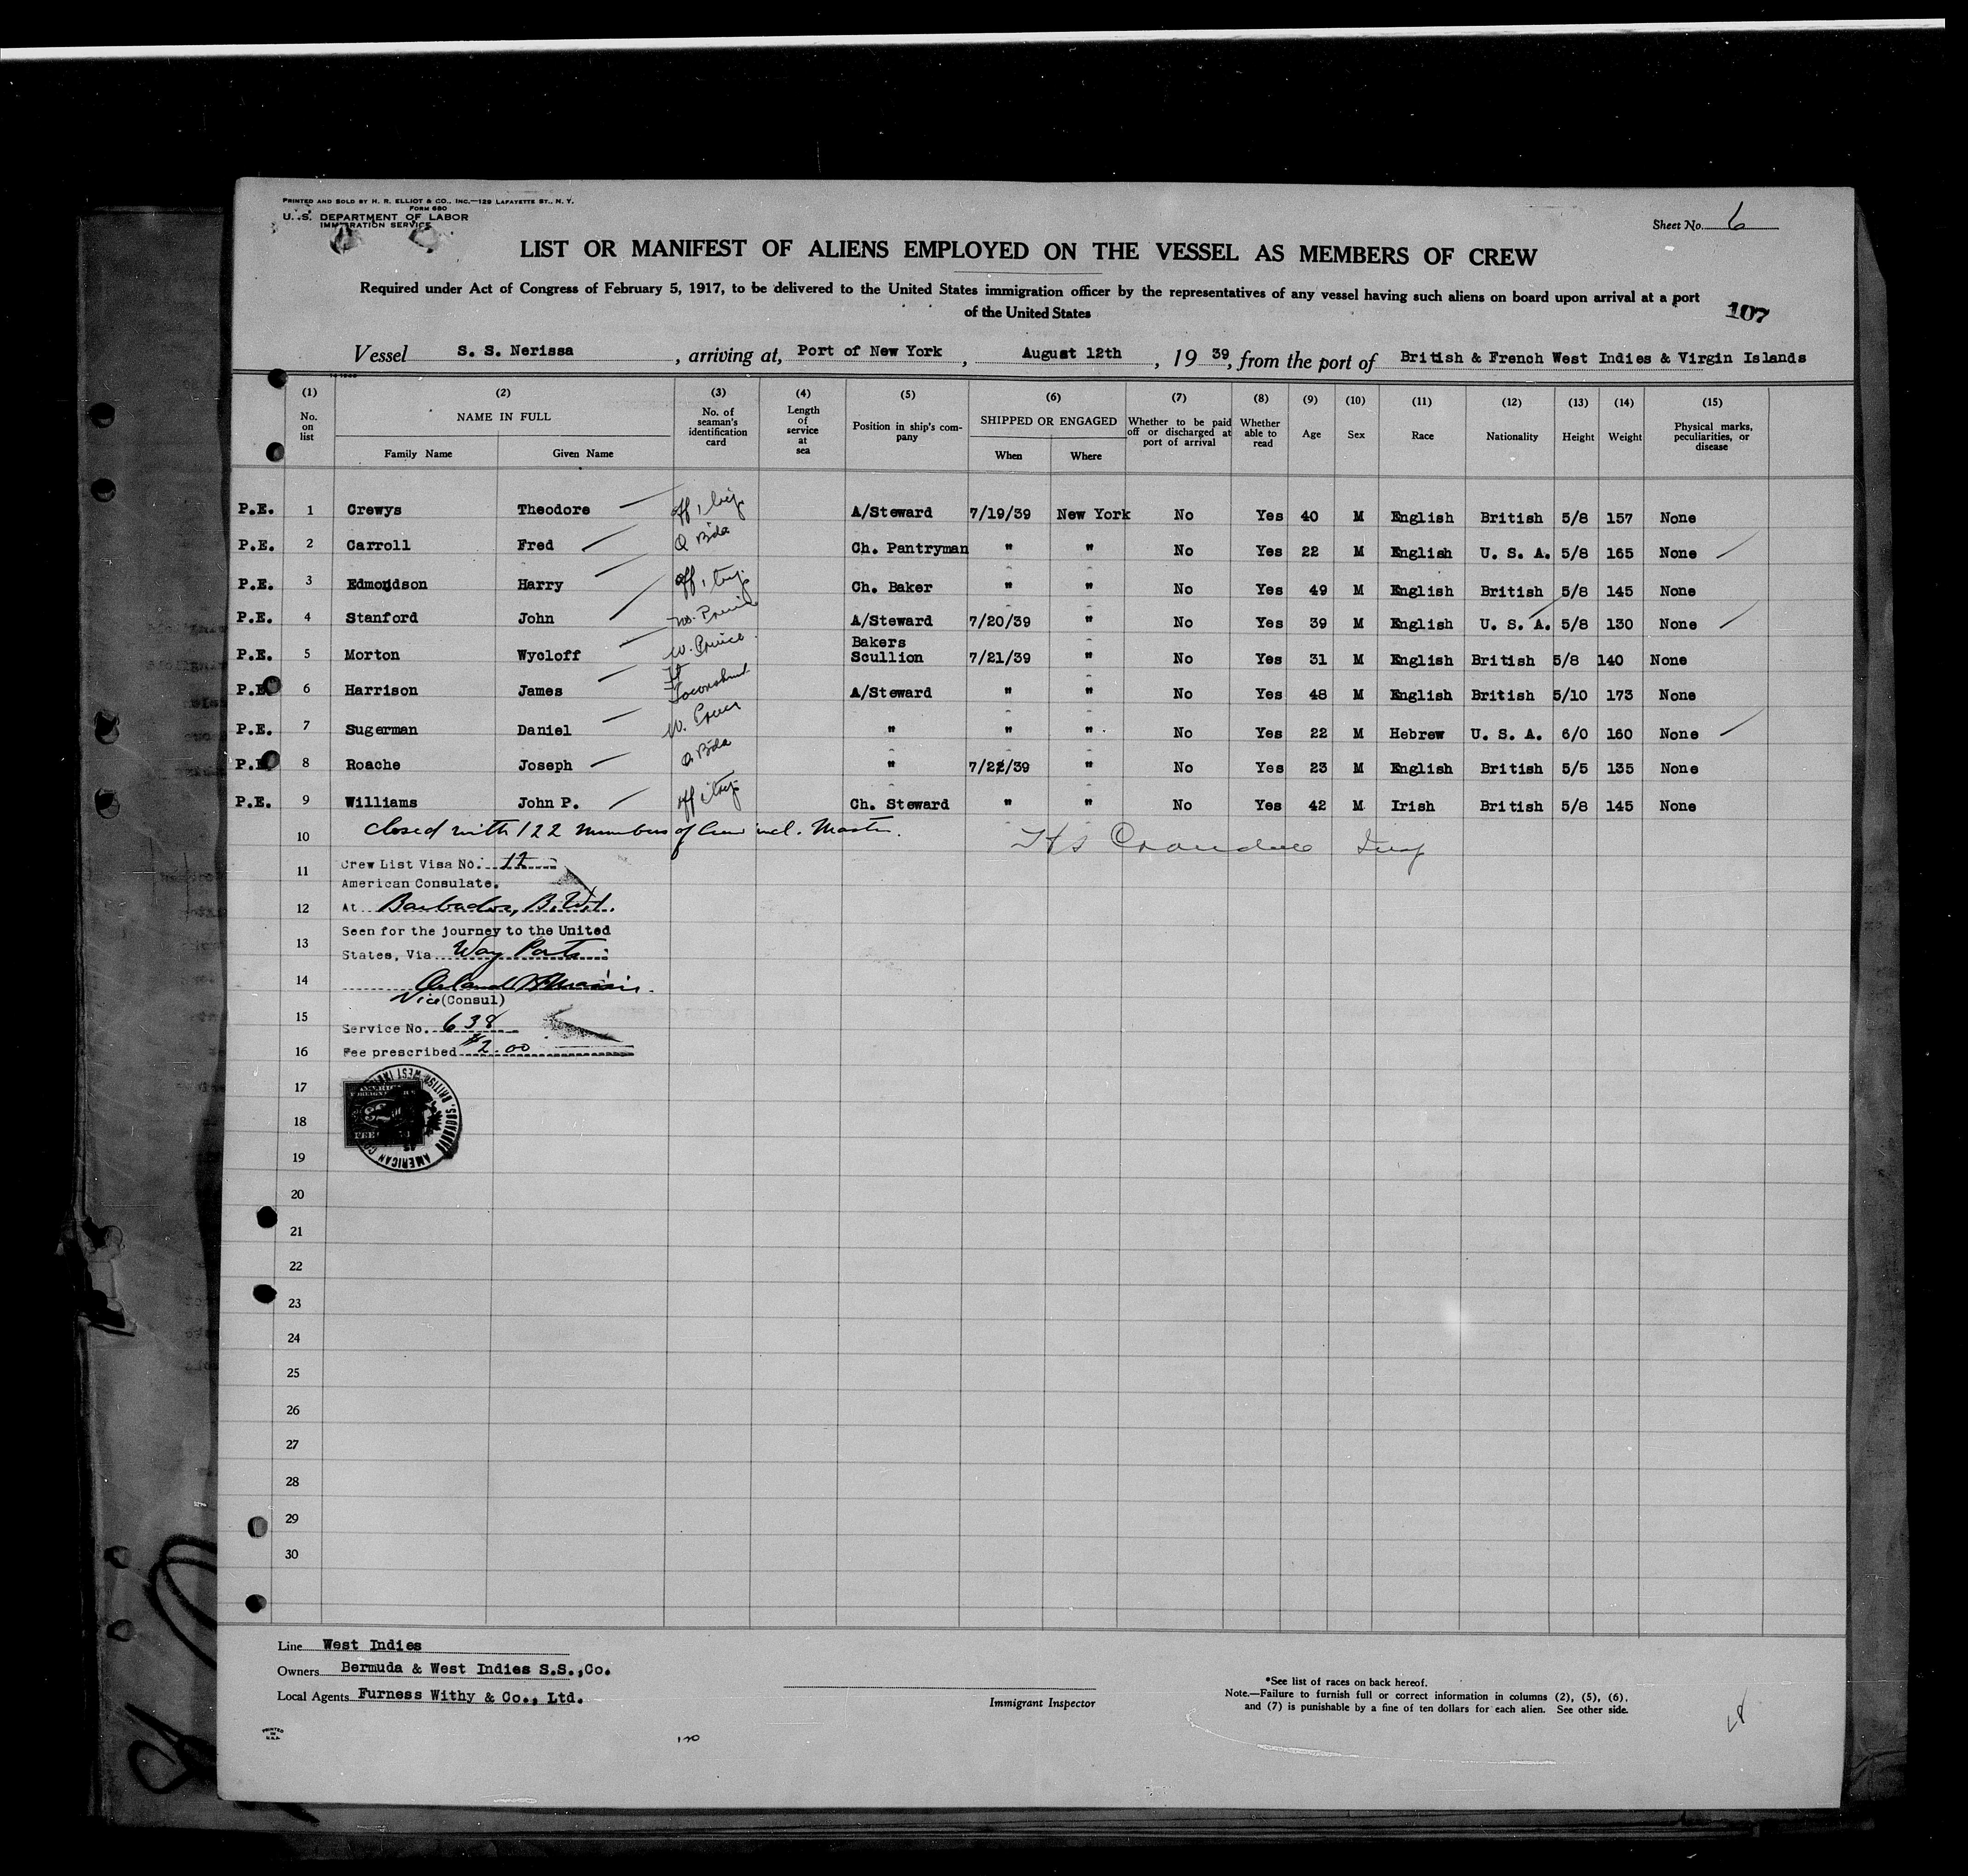 PRINTED AND SOLD BY H. R. ELLIOT & CO., INC.—129 LAFAYETTE ST., N. Y.
FORM 680
U. S. DEPARTMENT OF LABOR
IMMIGRATION SERVICE
Sheet No. 6
LIST OR MANIFEST OF ALIENS EMPLOYED ON THE VESSEL AS MEMBERS OF CREW
Required under Act of Congress of February 5, 1917, to be delivered to the United States immigration officer by the representatives of any vessel having such aliens on board upon arrival at a port
of the United States
107
Vessel S. S. Nerissa, arriving at, Port of New York, August 12th, 19 39, from the port of British & French West Indies & Virgin Islands
(1) (2) (3) (4) (5) (6) (7) (8) (9) (10) (11) (12) (13) (14) (15)
No. on list NAME IN FULL No. of seaman's identification card Length of service at sea Position in ship's company SHIPPED OR ENGAGED Whether to be paid off or discharged at port of arrival Whether able to read Age Sex Race Nationality Height Weight Physical marks, peculiarities, or disease
Family Name Given Name When Where
P.E. 1 Crewys Theodore A/Steward 7/19/39 New York No Yes 40 M English British 5/8 157 None
P.E. 2 Carroll Fred Q Bda Ch. Pantryman " " No Yes 22 M English U. S. A. 5/8 165 None
P.E. 3 Edmondson Harry Ch. Baker " " No Yes 49 M English British 5/8 145 None
P.E. 4 Stanford John A/Steward 7/20/39 " No Yes 39 M English U. S. A. 5/8 130 None
P.E. 5 Morton Wycloff Bakers Scullion 7/21/39 " No Yes 31 M English British 5/8 140 None
P.E. 6 Harrison James A/Steward " " No Yes 48 M English British 5/10 173 None
P.E. 7 Sugerman Daniel " " " No Yes 22 M Hebrew U. S. A. 6/0 160 None
P.E. 8 Roache Joseph Q Bda " 7/22/39 " No Yes 23 M English British 5/5 135 None
P.E. 9 Williams John P. Ch. Steward " " No Yes 42 M Irish British 5/8 145 None
10 Closed with 122 members of Crew incl. Master.
11 Crew List Visa No. 12
American Consulate.
12 At Barbados, B.W.I.
Seen for the journey to the United
13 States, Via Way Ports
14
Vice (Consul)
15 Service No. 638
16 Fee prescribed $2.00
17
18
19
20
21
22
23
24
25
26
27
28
29
30
Line West Indies
Owners Bermuda & West Indies S.S.,Co.
Local Agents Furness Withy & Co., Ltd.
Immigrant Inspector
*See list of races on back hereof.
Note.—Failure to furnish full or correct information in columns (2), (5), (6),
and (7) is punishable by a fine of ten dollars for each alien. See other side.
PRINTED
IN
U.S.A.